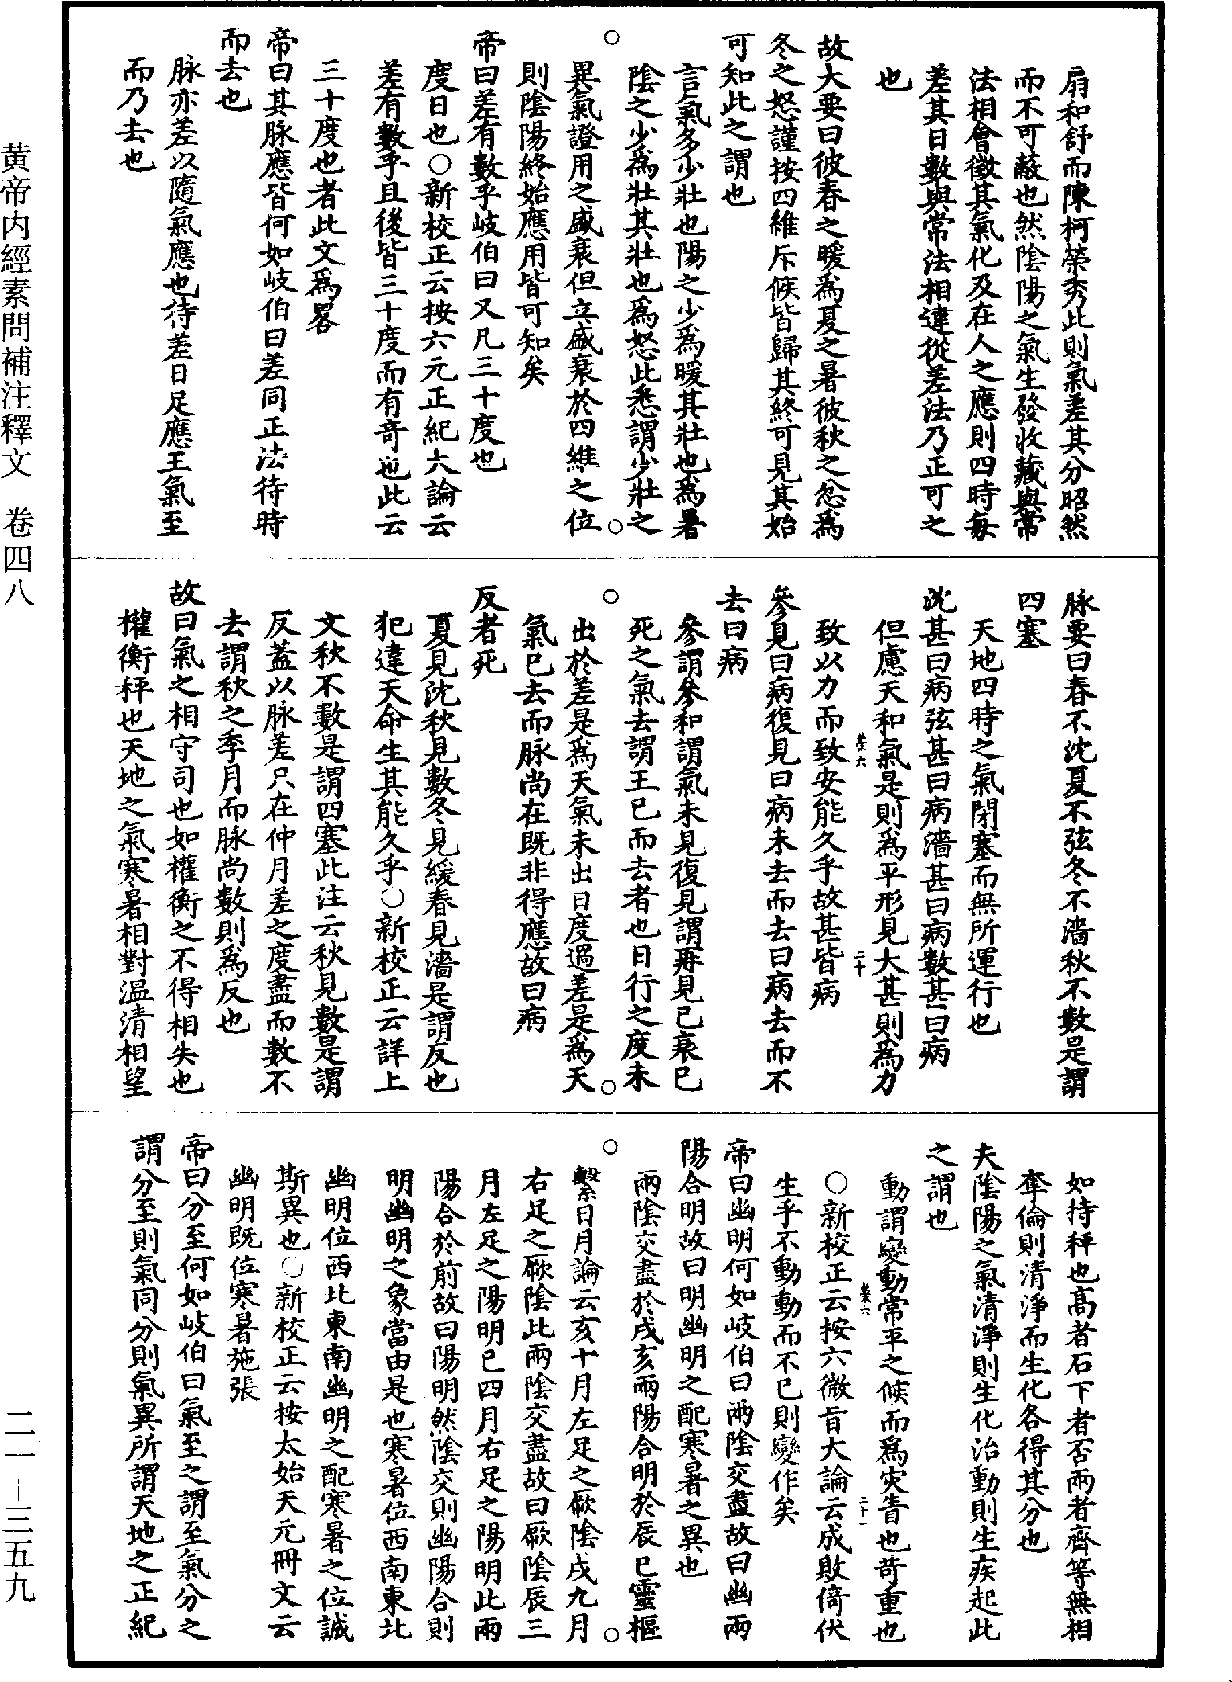 黃帝内經素問補注釋文　卷四八
二一－三五九
扇和舒而陳柯榮秀此則氣差其分昭然
而不可蔽也然陰陽之氣生發收藏與常
法相會徵其氣化及在人之應則四時每
差其日數與常法相違從差法乃正可之
也
故大要曰彼春之暖爲夏之暑彼秋之忿爲
冬之怒謹按四維斥候皆歸其終可見其始
可知此之謂也
言氣多少壯也陽之少爲暖其壯也爲暑
陰之少爲壯其壯也爲怒此悉謂少壯之
異氣證用之盛衰但立盛衰於四維之位
則陰陽終始應用皆可知矣
帝曰差有數乎岐伯曰又凡三十度也
度日也○新校正云按六元正紀大論云
差有數乎且後皆三十度而有奇也此云
三十度也者此文爲畧
帝曰其脉應皆何如岐伯曰差同正法待時
而去也
脉亦差以隨氣應也待差日足應王氣至
而乃去也
脉要曰春不沈夏不弦冬不濇秋不數是謂
四塞
天地四時之氣閉塞而無所運行也
沈甚曰病弦甚曰病濇甚曰病數甚曰病
但慮天和氣是則爲平形見大甚則爲力
致以力而致安能久乎故甚皆病
參見曰病復見曰病未去而去曰病去而不
去曰病
參謂參和謂氣未見復見謂再見已衰已
死之氣去謂王已而去者也日行之度未
出於差是爲天氣未出日度過差是爲天
氣已去而脉尚在既非得應故曰病
反者死
夏見沈秋見數冬見緩春見濇是謂反也
犯違天命生其能久乎○新校正云詳上
文秋不數是謂四塞此注云秋見數是謂
反蓋以脉差只在仲月差之度盡而數不
去謂秋之季月而脉尚數則爲反也
故曰氣之相守司也如權衡之不得相失也
權衡秤也天地之氣寒暑相對溫清相望
如持秤也高者石下者否兩者齊等無相
奪倫則清淨而生化各得其分也
夫陰陽之氣清淨則生化治動則生疾起此
之謂也
動謂變動常平之候而爲災眚也苛重也
○新校正云按六微旨大論云成敗倚伏
生乎不動動而不已則變作矣
帝曰幽明何如岐伯曰兩陰交盡故曰幽兩
陽合明故曰明幽明之配寒暑之異也
兩陰交盡於戌亥兩陽合明於辰巳靈樞
繫日月論云亥十月左足之厥陰戌九月
右足之厥陰此兩陰交盡故曰厥陰辰三
月左足之陽明巳四月右足之陽明此兩
陽合於前故曰陽明然陰交則幽陽合則
明幽明之象當由是也寒暑位西南東北
幽明位西北東南幽明之配寒暑之位誠
斯異也○新校正云按太始天元冊文云
幽明既位寒暑施張
帝曰分至何如岐伯曰氣至之謂至氣分之
謂分至則氣同分則氣異所謂天地之正紀